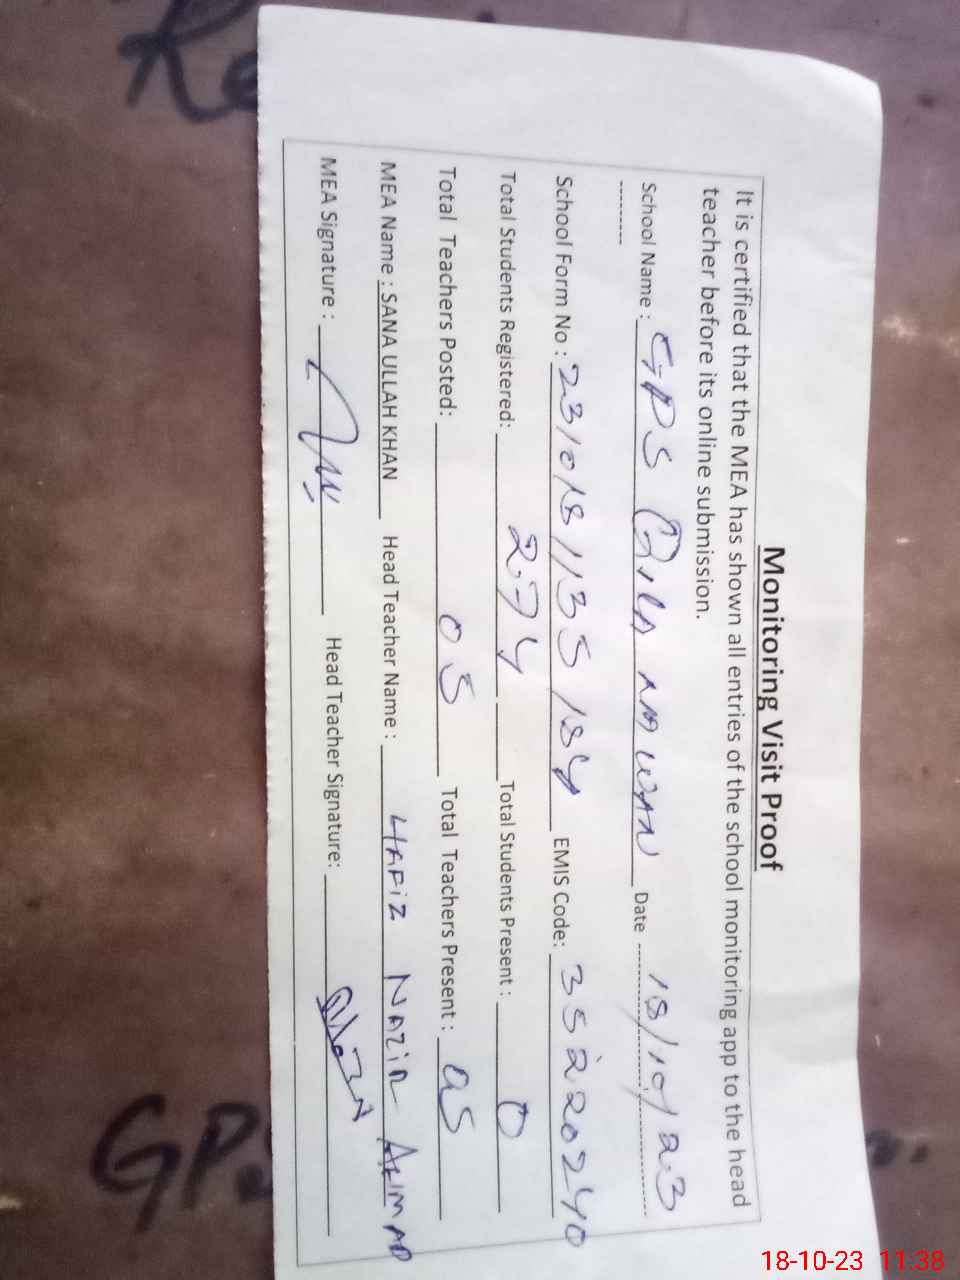 Monitoring Visit Proof
It is certified that the MEA has shown all entries of the school monitoring app to the head
teacher before its online submission.
School Name : GPS QilA AWAN Date 18/10/23
School Form No : EMIS Code: 35220240
Total Students Registered: 274 Total Students Present : 0
Total Teachers Posted: 05 Total Teachers Present : 05
MEA Name : SANA ULLAH KHAN Head Teacher Name : HAFIZ NAZIR AHMAD
MEA Signature : Head Teacher Signature:
GPS
18-10-23 11:38